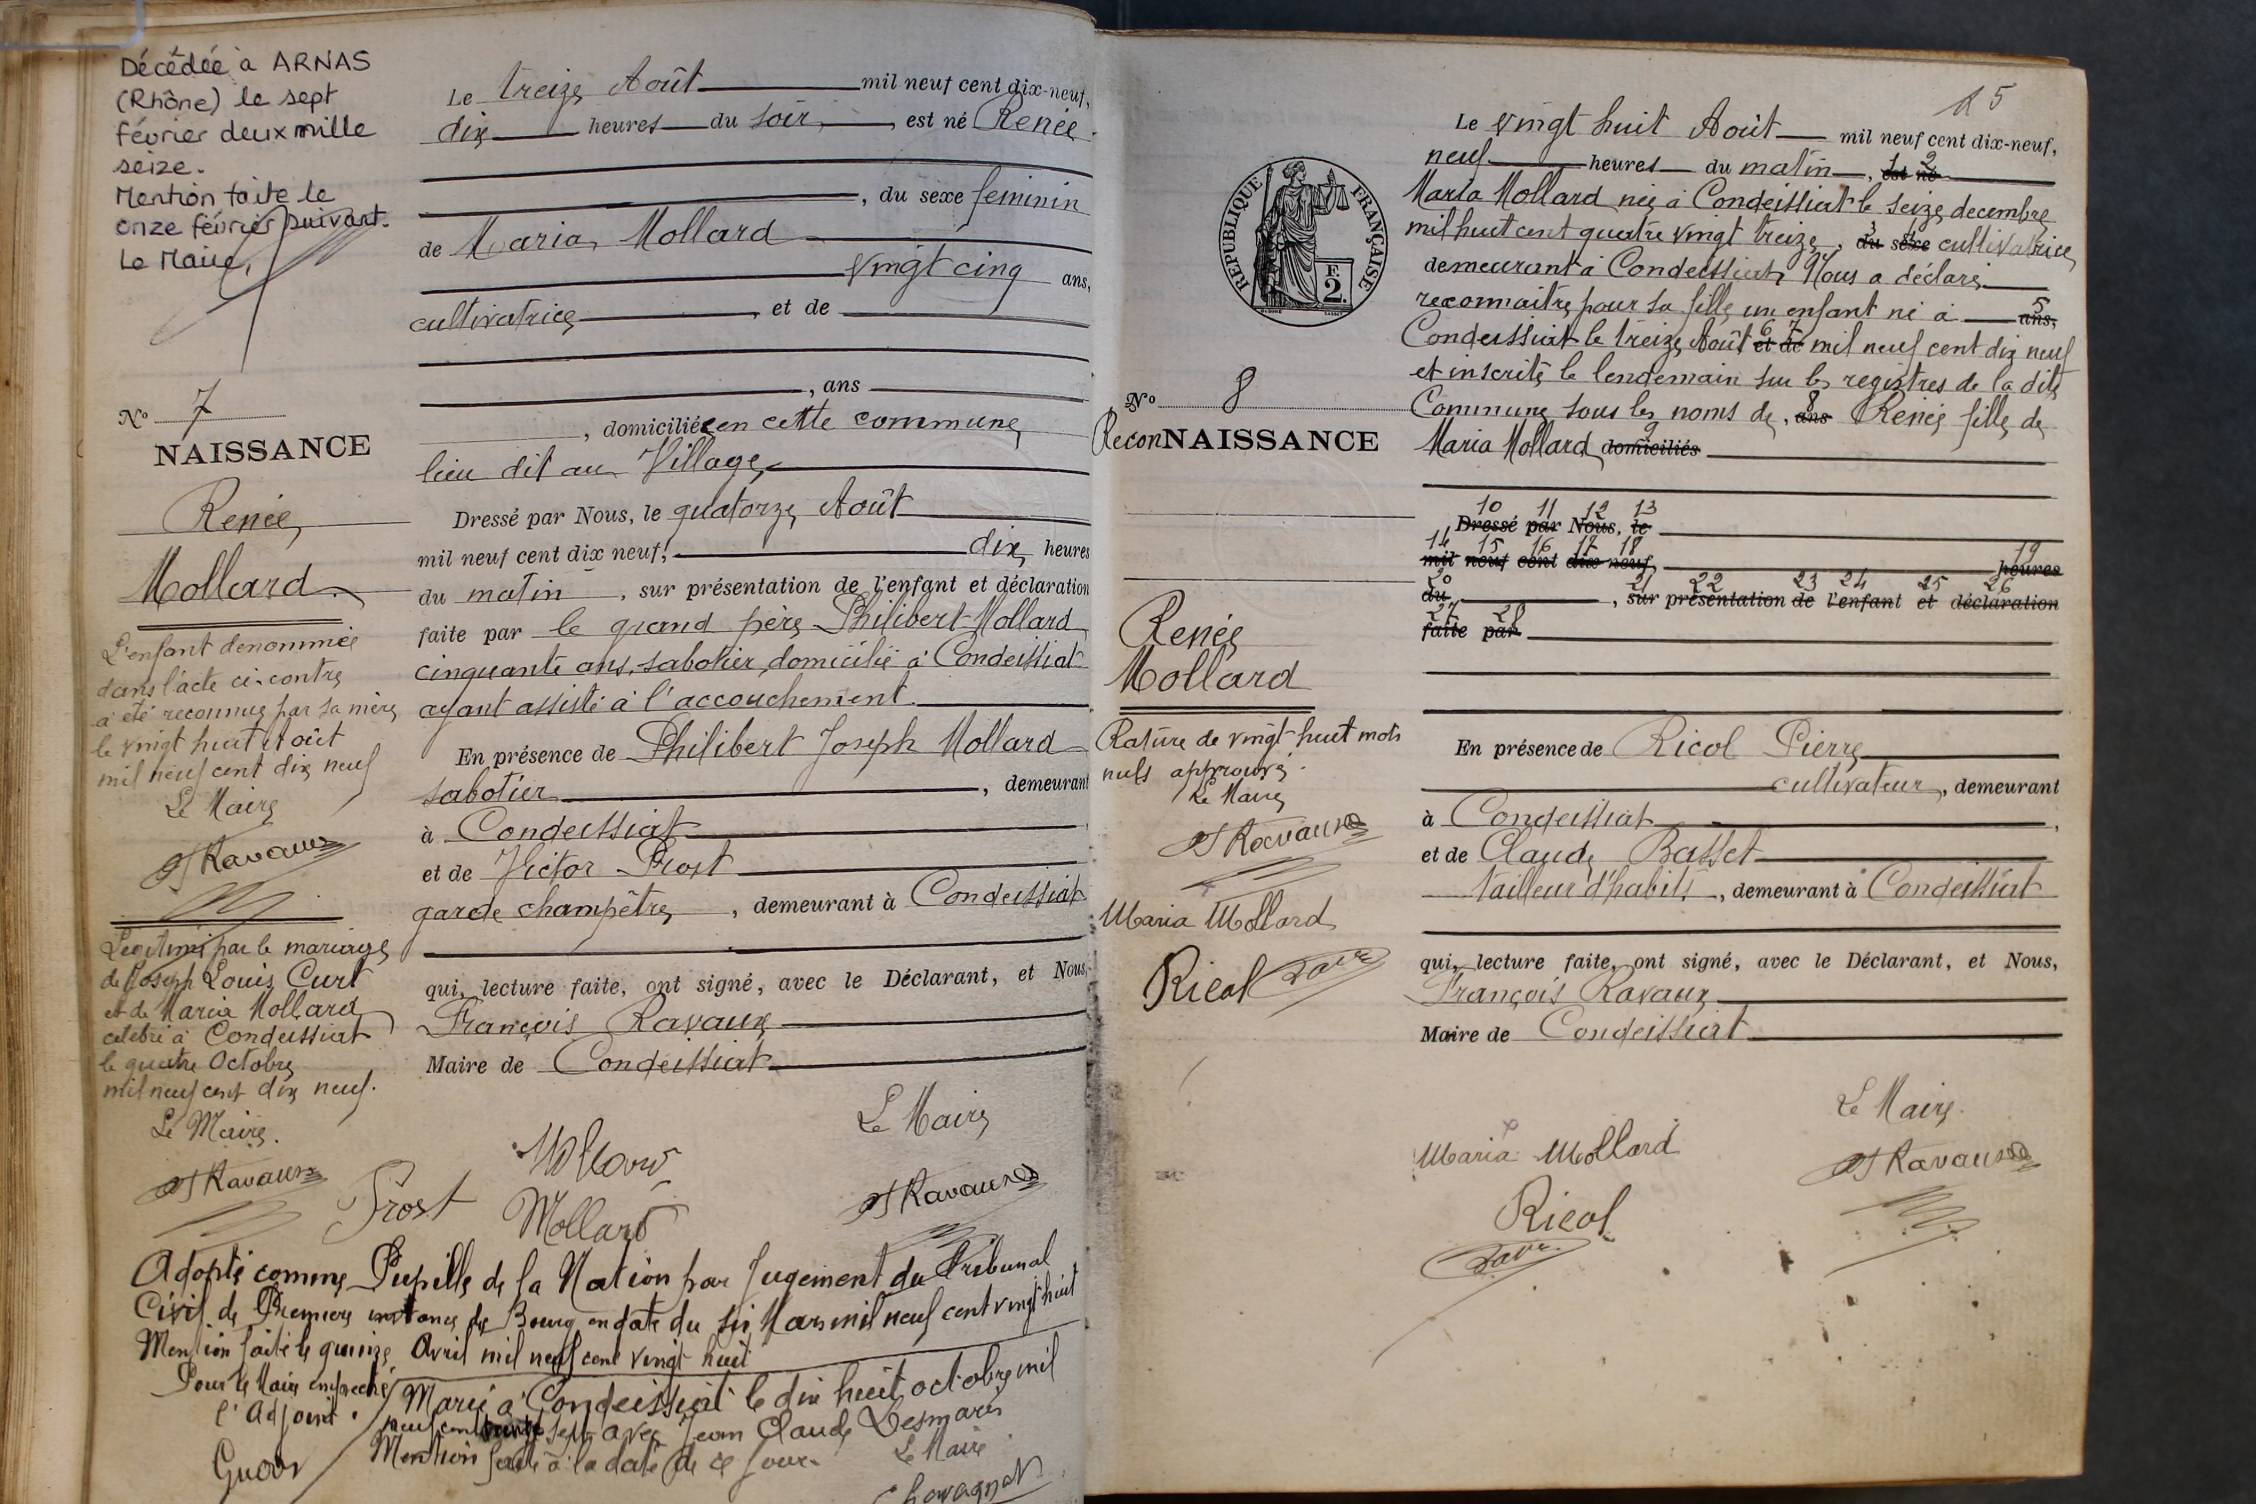 Décédée à ARNAS
(Rhône) le sept
février deux mille
seize.
Mention faite le
onze février suivant.
Le Maire,
N° 7
NAISSANCE
Renée
Mollard
L'enfant dénommée
dans l'acte ci-contre
a été reconnue par sa mère
le vingt huit Août
mil neuf cent dix neuf
Le Maire
Ravaux
Légitimée par le mariage
de Joseph Louis Curt
et de Maria Mollard
célébré à Condeissiat
le quatre Octobre
mil neuf cent dix neuf.
Le Maire.
Ravaux
Le treize Août mil neuf cent dix-neuf,
dix heures du soir, est né Renée
, du sexe feminin
de Maria Mollard
vingt cinq ans,
cultivatrice, et de
, ans
, domiciliée en cette commune
lieu dit au Village
Dressé par Nous, le quatorze Août
mil neuf cent dix neuf, dix heures
du matin, sur présentation de l'enfant et déclaration
faite par le grand père Philibert Mollard
cinquante ans, sabotier, domicilié à Condeissiat
ayant assisté à l'accouchement.
En présence de Philibert Joseph Mollard
sabotier, demeurant
à Condeissiat
et de Victor Prost
garde champêtre, demeurant à Condeissiat
qui, lecture faite, ont signé, avec le Déclarant, et Nous,
François Ravaux
Maire de Condeissiat
Le Maire
Mollard
Prost
Mollard
Ravaux
Adopté comme Pupille de la Nation par Jugement du Tribunal
Civil de Première instance de Bourg en date du six Mars mil neuf cent vingt huit
Mention faite le quinze Avril mil neuf cent vingt huit
Pour le Maire empêché
l'Adjoint.
Marié à Condeissiat le dix huit octobre mil
neuf cent trente sept avec Jean Claude Desmaris
Mention faite à la date de ce jour.
Le Maire
25
N° 8
ReconNAISSANCE
RÉPUBLIQUE FRANÇAISE
F.
2.
Renée
Mollard
Rature de vingt huit mots
nuls approuvé.
Le Maire
Ravaux
Maria Mollard
Ricol
Le vingt huit Août mil neuf cent dix-neuf,
neuf heures du matin, 1 est 2 né
Maria Mollard née à Condeissiat le seize decembre
mil huit cent quatre vingt treize, 3 du 4 sexe cultivatrice
demeurant à Condeissiat, Nous a déclaré
reconnaitre pour sa fille un enfant né à 5 ans,
Condeissiat le treize Août 6 et 7 de mil neuf cent dix neuf
et inscrite le lendemain sur les registres de la dite
Commune sous les noms de, 8 ans Renée fille de
Maria Mollard 9 domiciliés
10 11 12 13
Dressé par Nous, le
14 15 16 17 18 19
mil neuf cent dix neuf, heures
20 21 22 23 24 25 26
du, sur présentation de l'enfant et déclaration
27 28
faite par
En présence de Ricol Pierre
cultivateur, demeurant
à Condeissiat,
et de Claude Basset
tailleur d'habits, demeurant à Condeissiat
qui, lecture faite, ont signé, avec le Déclarant, et Nous,
François Ravaux
Maire de Condeissiat
Le Maire.
Maria Mollard
Ravaux
Ricol